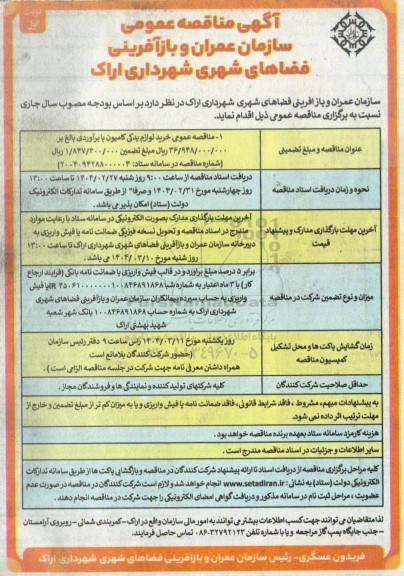 آگهی مناقصه عمومی
سازمان عمران و بازآفرینی
فضاهای شهری شهرداری اراک
سازمان عمران و باز آفرینی فضاهای شهری شهرداری اراک در نظر دارد بر اساس بودجه مصوب سال جاری
نسبت به برگزاری مناقصه عمومی ذیل اقدام نماید.
عنوان مناقصه و مبلغ تضمینی
۱- مناقصه عمومی خرید لوازم یدکی کامیون با برآوردی بالغ بر
۳۶/۹۴۸/۰۰۰/۰۰۰ ریال و مبلغ تضمین ۱/۸۴۷/۴۰۰/۰۰۰ ریال
(شماره مناقصه در سامانه ستاد: ۲۰۰۴۰۹۴۲۸۸۰۰۰۰۰۴)
نحوه و زمان دریافت اسناد مناقصه
دریافت اسناد مناقصه از ساعت ۹:۰۰ روز شنبه ۱۴۰۴/۰۲/۲۷ تا ساعت ۱۳:۰۰
روز چهارشنبه مورخ ۱۴۰۴/۰۲/۳۱ و صرفا" از طریق سامانه تدارکات الکترونیک
دولت (ستاد) امکان پذیر می باشد.
آخرین مهلت بارگذاری مدارک و پیشنهاد
قیمت
آخرین مهلت بارگذاری مدارک بصورت الکترونیک در سامانه ستاد با رعایت موارد
مندرج در اسناد مناقصه و تحویل نسخه فیزیکی ضمانت نامه یا فیش واریزی به
دبیرخانه سازمان عمران و بازآفرینی فضاهای شهری شهرداری اراک تا ساعت ۱۳:۰۰
روز شنبه مورخ ۱۴۰۴/۰۳/۱۰ می باشد.
میزان و نوع تضمین شرکت در مناقصه
برابر ۵ درصد مبلغ برآورد و در قالب فیش واریزی یا ضمانت نامه بانکی (فرایند ارجاع
کار) با ۳ ماه اعتبار به شماره شبا
واریزی به حساب سپرده پیمانکاران سازمان عمران و بازآفرینی فضاهای شهری
شهرداری اراک به شماره حساب ۱۰۰۸۴۶۸۹۱۸۶۸ بانک شهر شعبه
شهید بهشتی اراک
زمان گشایش پاکت ها و محل تشکیل
کمیسیون مناقصه
روز یکشنبه مورخ ۱۴۰۴/۰۳/۱۱ راس ساعت ۹ دفتر رئیس سازمان
(حضور شرکت کنندگان بلامانع است
همراه داشتن معرفی نامه جهت شرکت در جلسه مناقصه الزامی است).
حداقل صلاحیت شرکت کنندگان
کلیه شرکتهای تولید کننده و نمایندگی ها و فروشندگان مجاز.
به پیشنهادات مبهم، مشروط، فاقد شرایط قانونی، فاقد ضمانت نامه یا فیش واریزی و یا به میزان کم تر از مبلغ تضمین و خارج از
مهلت ترتیب اثر داده نمی شود.
هزینه کارمزد سامانه ستاد بعهده برنده مناقصه خواهد بود.
سایر اطلاعات و جزئیات در اسناد مناقصه مندرج است.
کلیه مراحل برگزاری مناقصه از دریافت اسناد تا ارائه پیشنهاد شرکت کنندگان در مناقصه و بازگشایی پاکت ها از طریق سامانه تدارکات
الکترونیکی دولت (ستاد) به نشانی: www.setadiran.ir انجام خواهد شد و لازم است شرکت کنندگان در مناقصه در صورت عدم
عضویت، مراحل ثبت نام در سامانه مذکور و دریافت گواهی امضای الکترونیکی را جهت شرکت در مناقصه انجام دهند.
لذا متقاضیان می توانند جهت کسب اطلاعات بیشتر می توانند به امور مالی سازمان واقع در اراک - کمربندی شمالی - روبروی آرامستان
- جنب جایگاه پمپ گاز مراجعه و یا با شماره تلفن ۰۸۶-۳۲۷۹۲۱۲۳ تماس حاصل فرمایند.
فریدون عسگری - رئیس سازمان عمران و بازآفرینی فضاهای شهری شهرداری اراک